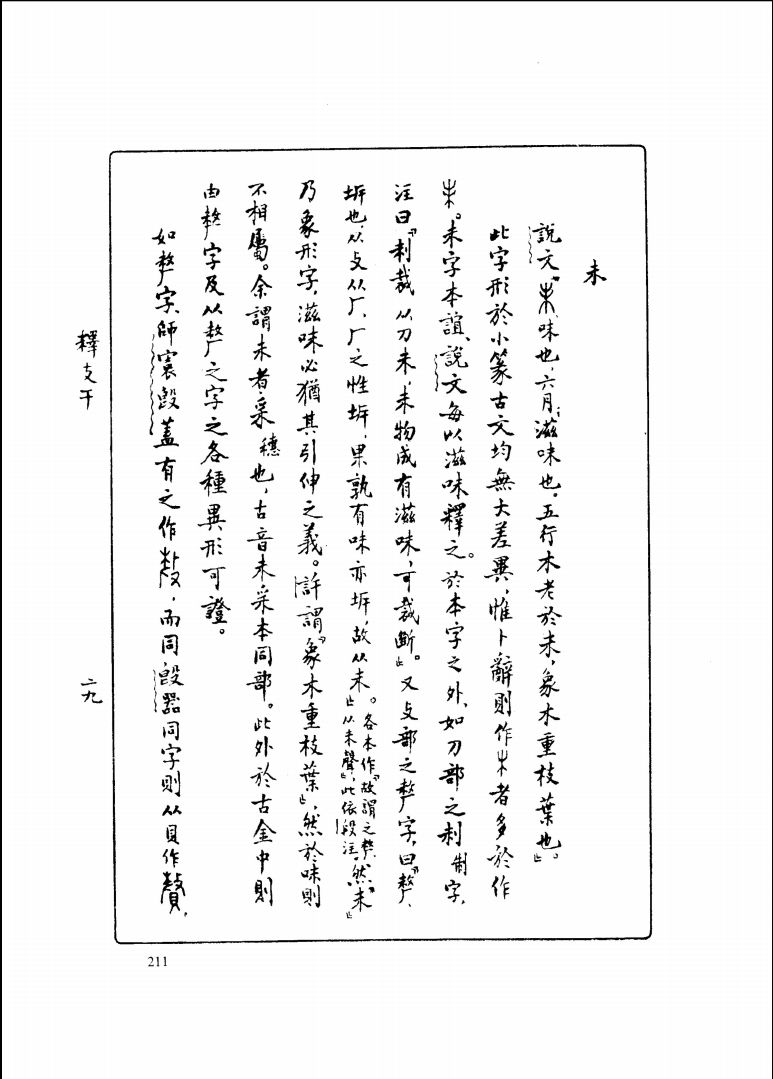 未
說文「未,味也,六月,滋味也。五行木老於未,象木重枝葉也。」
此字形於小篆古文均無大差異,惟卜辭則作者多於作
。未字本誼、說文每以滋味釋之。於本字之外,如刀部之制制字,
注曰「制裁从刀未,未物成有滋味,可裁斷。」又攴部之𠩺字,曰「𠩺、
坼也,从攴从厂,厂之性坼,果孰有味亦坼,故从未。」各本作「故謂之𠩺,从未聲」,此依段注。然「未」
乃象形字,滋味必猶其引伸之義。許謂「象木重枝葉」,然於味則
不相屬。余謂未者采穗也,古音未采本同部。此外於古金中則
由𠩺字及从𠩺之字之各種異形可證。
如𠩺字,師㝨𣪘蓋有之作,而同𣪘器同字則从貝作,
釋支干
二九
211